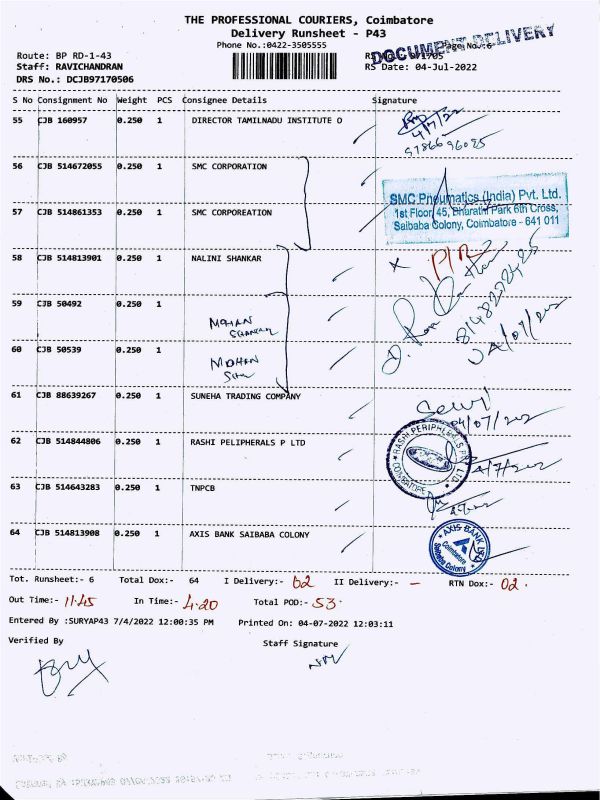 THE PROFESSIONAL COURIERS, Coimbatore
Delivery Runsheet - P43
Phone No.:0422-3505555
DOCUMENT DELIVERY
Page No.:6
Route: BP RD-1-43
Staff: RAVICHANDRAN
RS Date: 04-Jul-2022
DRS No.: DCJB97170506
S No Consignment No Weight PCS Consignee Details Signature
55 CJB 160957 0.250 1 DIRECTOR TAMILNADU INSTITUTE O
4/7/22
56 CJB 514672055 0.250 1 SMC CORPORATION
SMC Pneumatics (India) Pvt. Ltd.
1st Floor, 45, Bharathi Park 6th Cross,
Saibaba Colony, Coimbatore - 641 011
57 CJB 514861353 0.250 1 SMC CORPOREATION
58 CJB 514813901 0.250 1 NALINI SHANKAR
59 CJB 50492 0.250 1
MOHAN
60 CJB 50539 0.250 1
MOHAN
61 CJB 88639267 0.250 1 SUNEHA TRADING COMPANY
62 CJB 514844806 0.250 1 RASHI PELIPHERALS P LTD
RASHI PERIPHERALS
COIMBATORE
63 CJB 514643283 0.250 1 TNPCB
64 CJB 514813908 0.250 1 AXIS BANK SAIBABA COLONY
AXIS BANK LTD
Coimbatore
Saibaba Colony
Tot. Runsheet:- 6 Total Dox:- 64 I Delivery:- 62 II Delivery:- — RTN Dox:- 02
Out Time:- 11.45 In Time:- 4.20 Total POD:- 53
Entered By :SURYAP43 7/4/2022 12:00:35 PM Printed On: 04-07-2022 12:03:11
Verified By Staff Signature